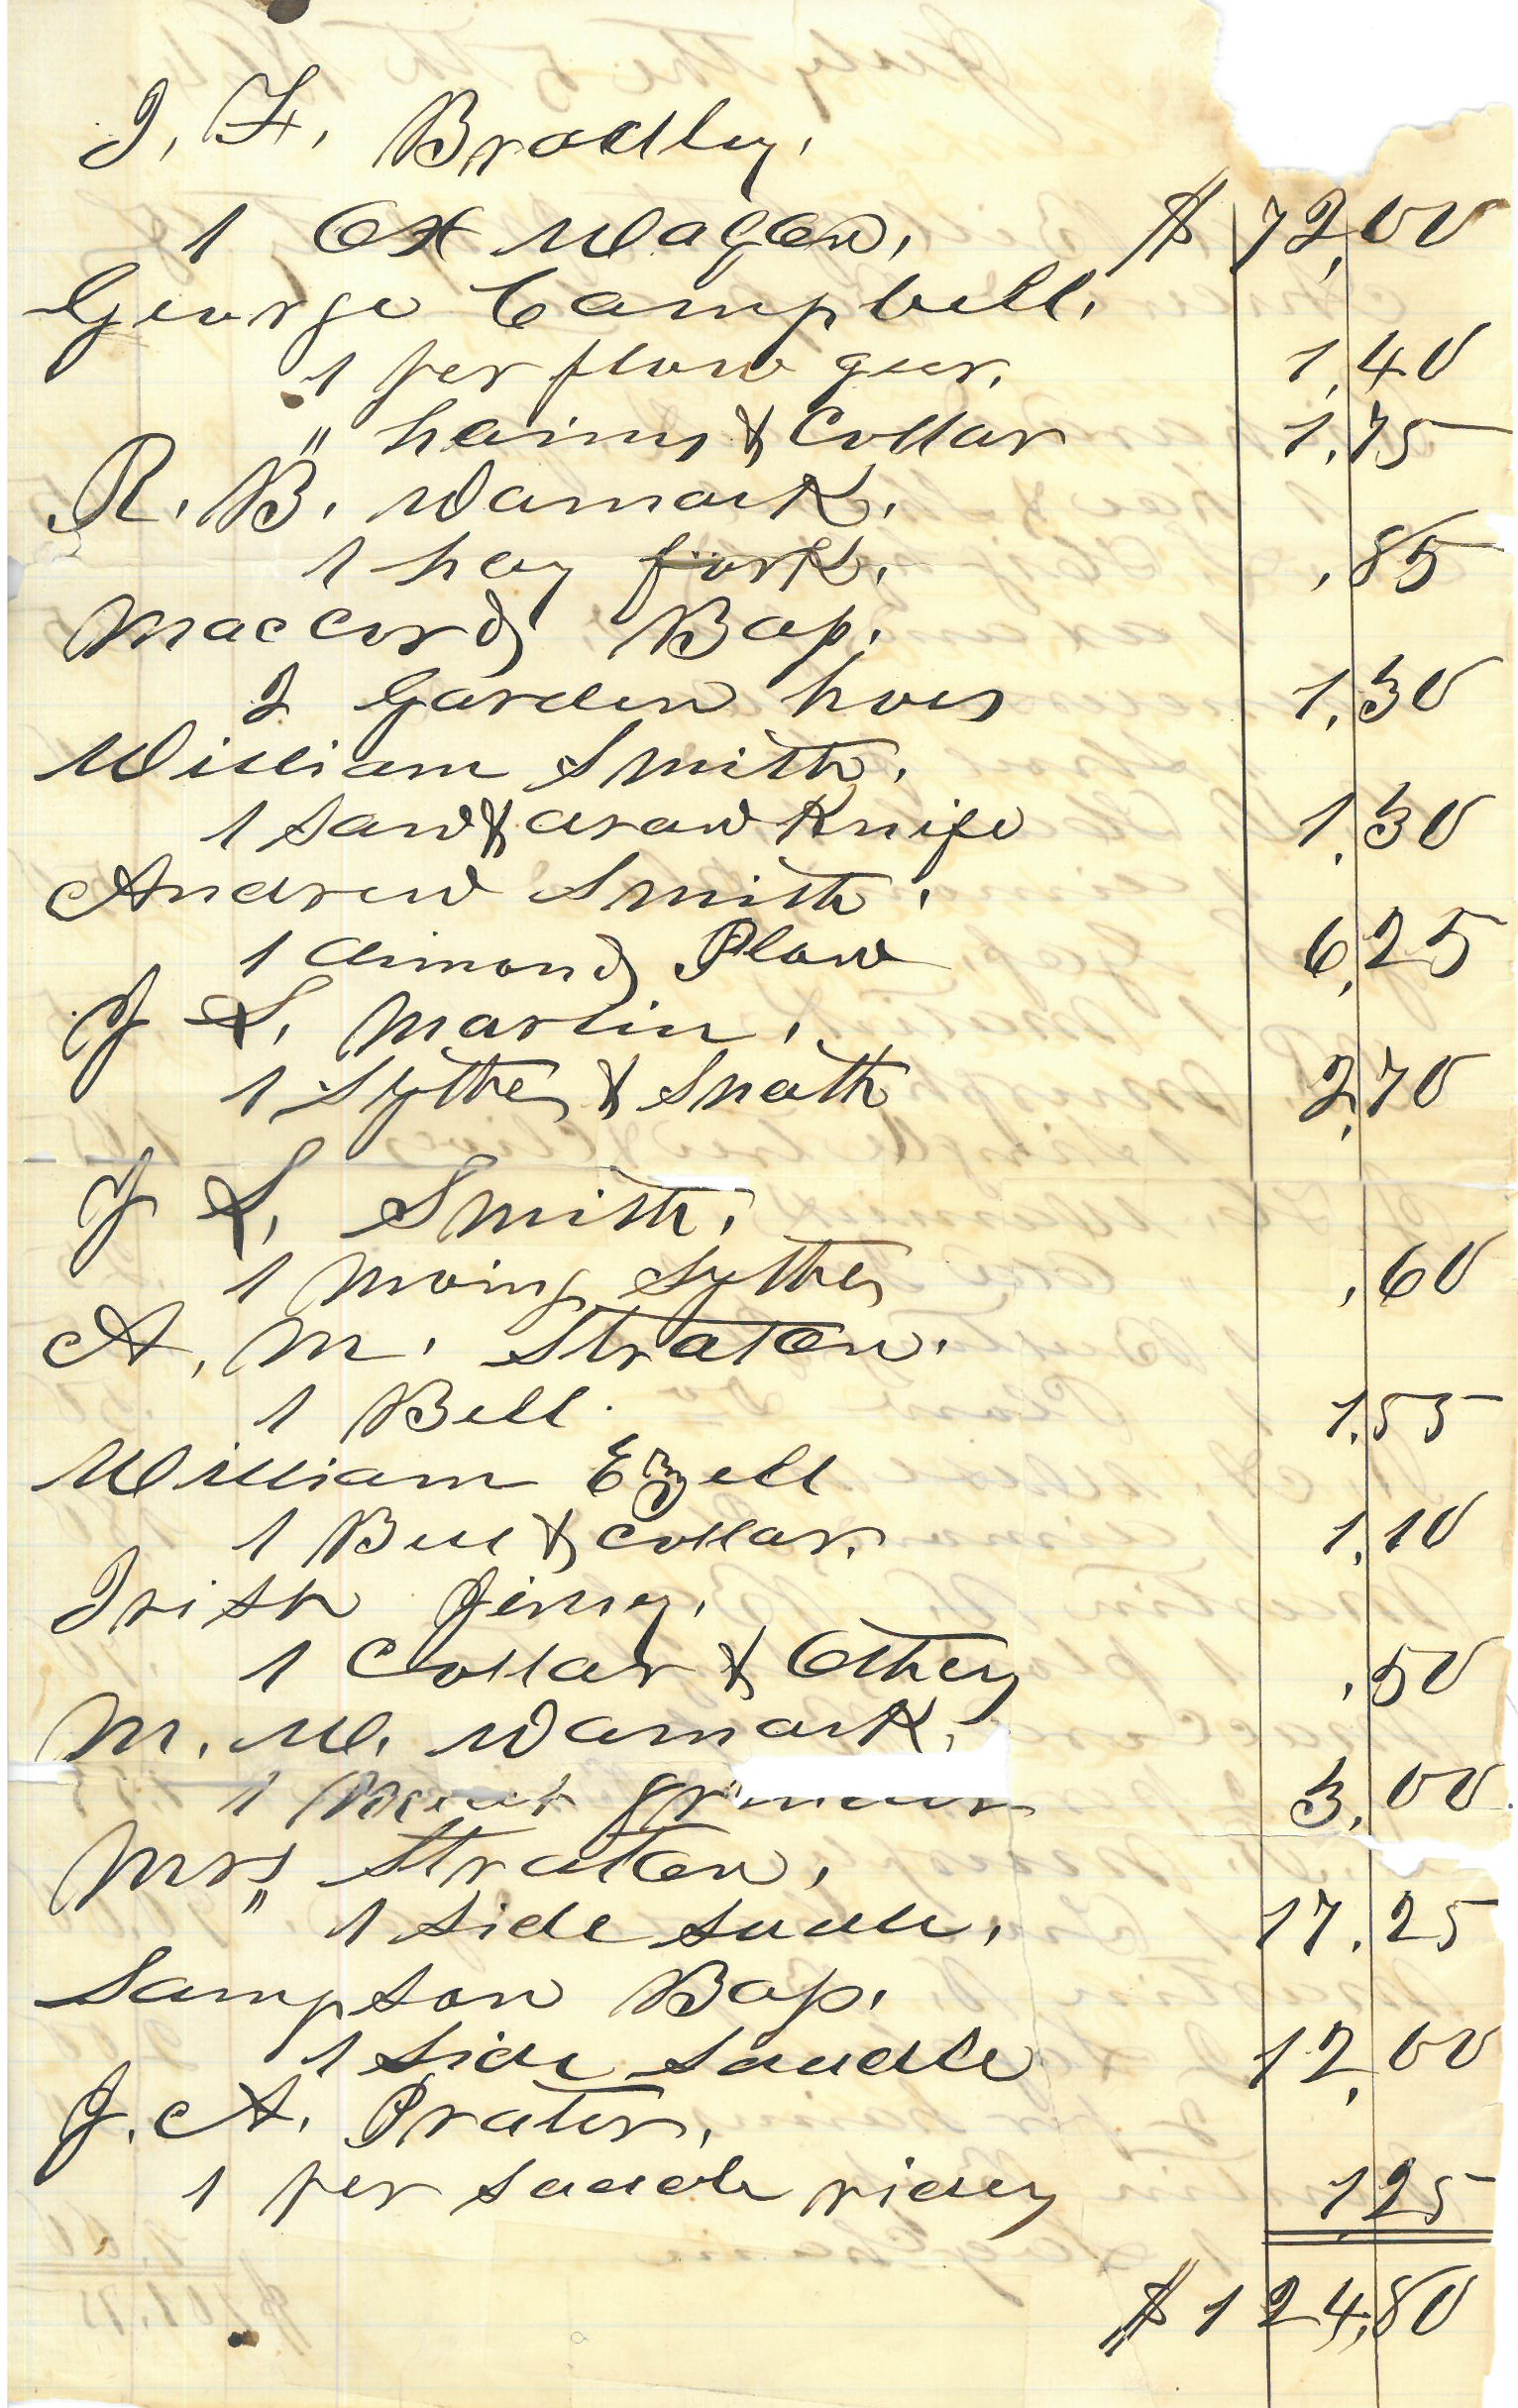 J. F. Bradley.
1 Ox Wagon. $ 72,00
George Campbell.
1 per plow geer. 1,40
" haims & Collar 1,75
R. B. Wamack.
1 hay fork. ,85
Maccord Bap.
2 Garden hoes 1,30
William Smith.
1 Saw & draw Knife 1,30
Andrew Smith.
1 dimond Plow 6,25
J S. Martin.
1 Sythe & Snath 2,70
J S. Smith.
1 Moing Sythe ,60
A. M. Straton.
1 Bell. 1,55
William Ezell
1 Bell & Collar. 1,10
Irish Jimy.
1 Collar & Othey ,50
M. W. Wamack.
1 Meat grinder 3,00
Mrs" Straton.
1 Side Sadle. 17,25
Sampson Bap.
1 Side Saddle 12,00
J. A. Prater.
1 per Saddle ridey 1,25
$ 124,80